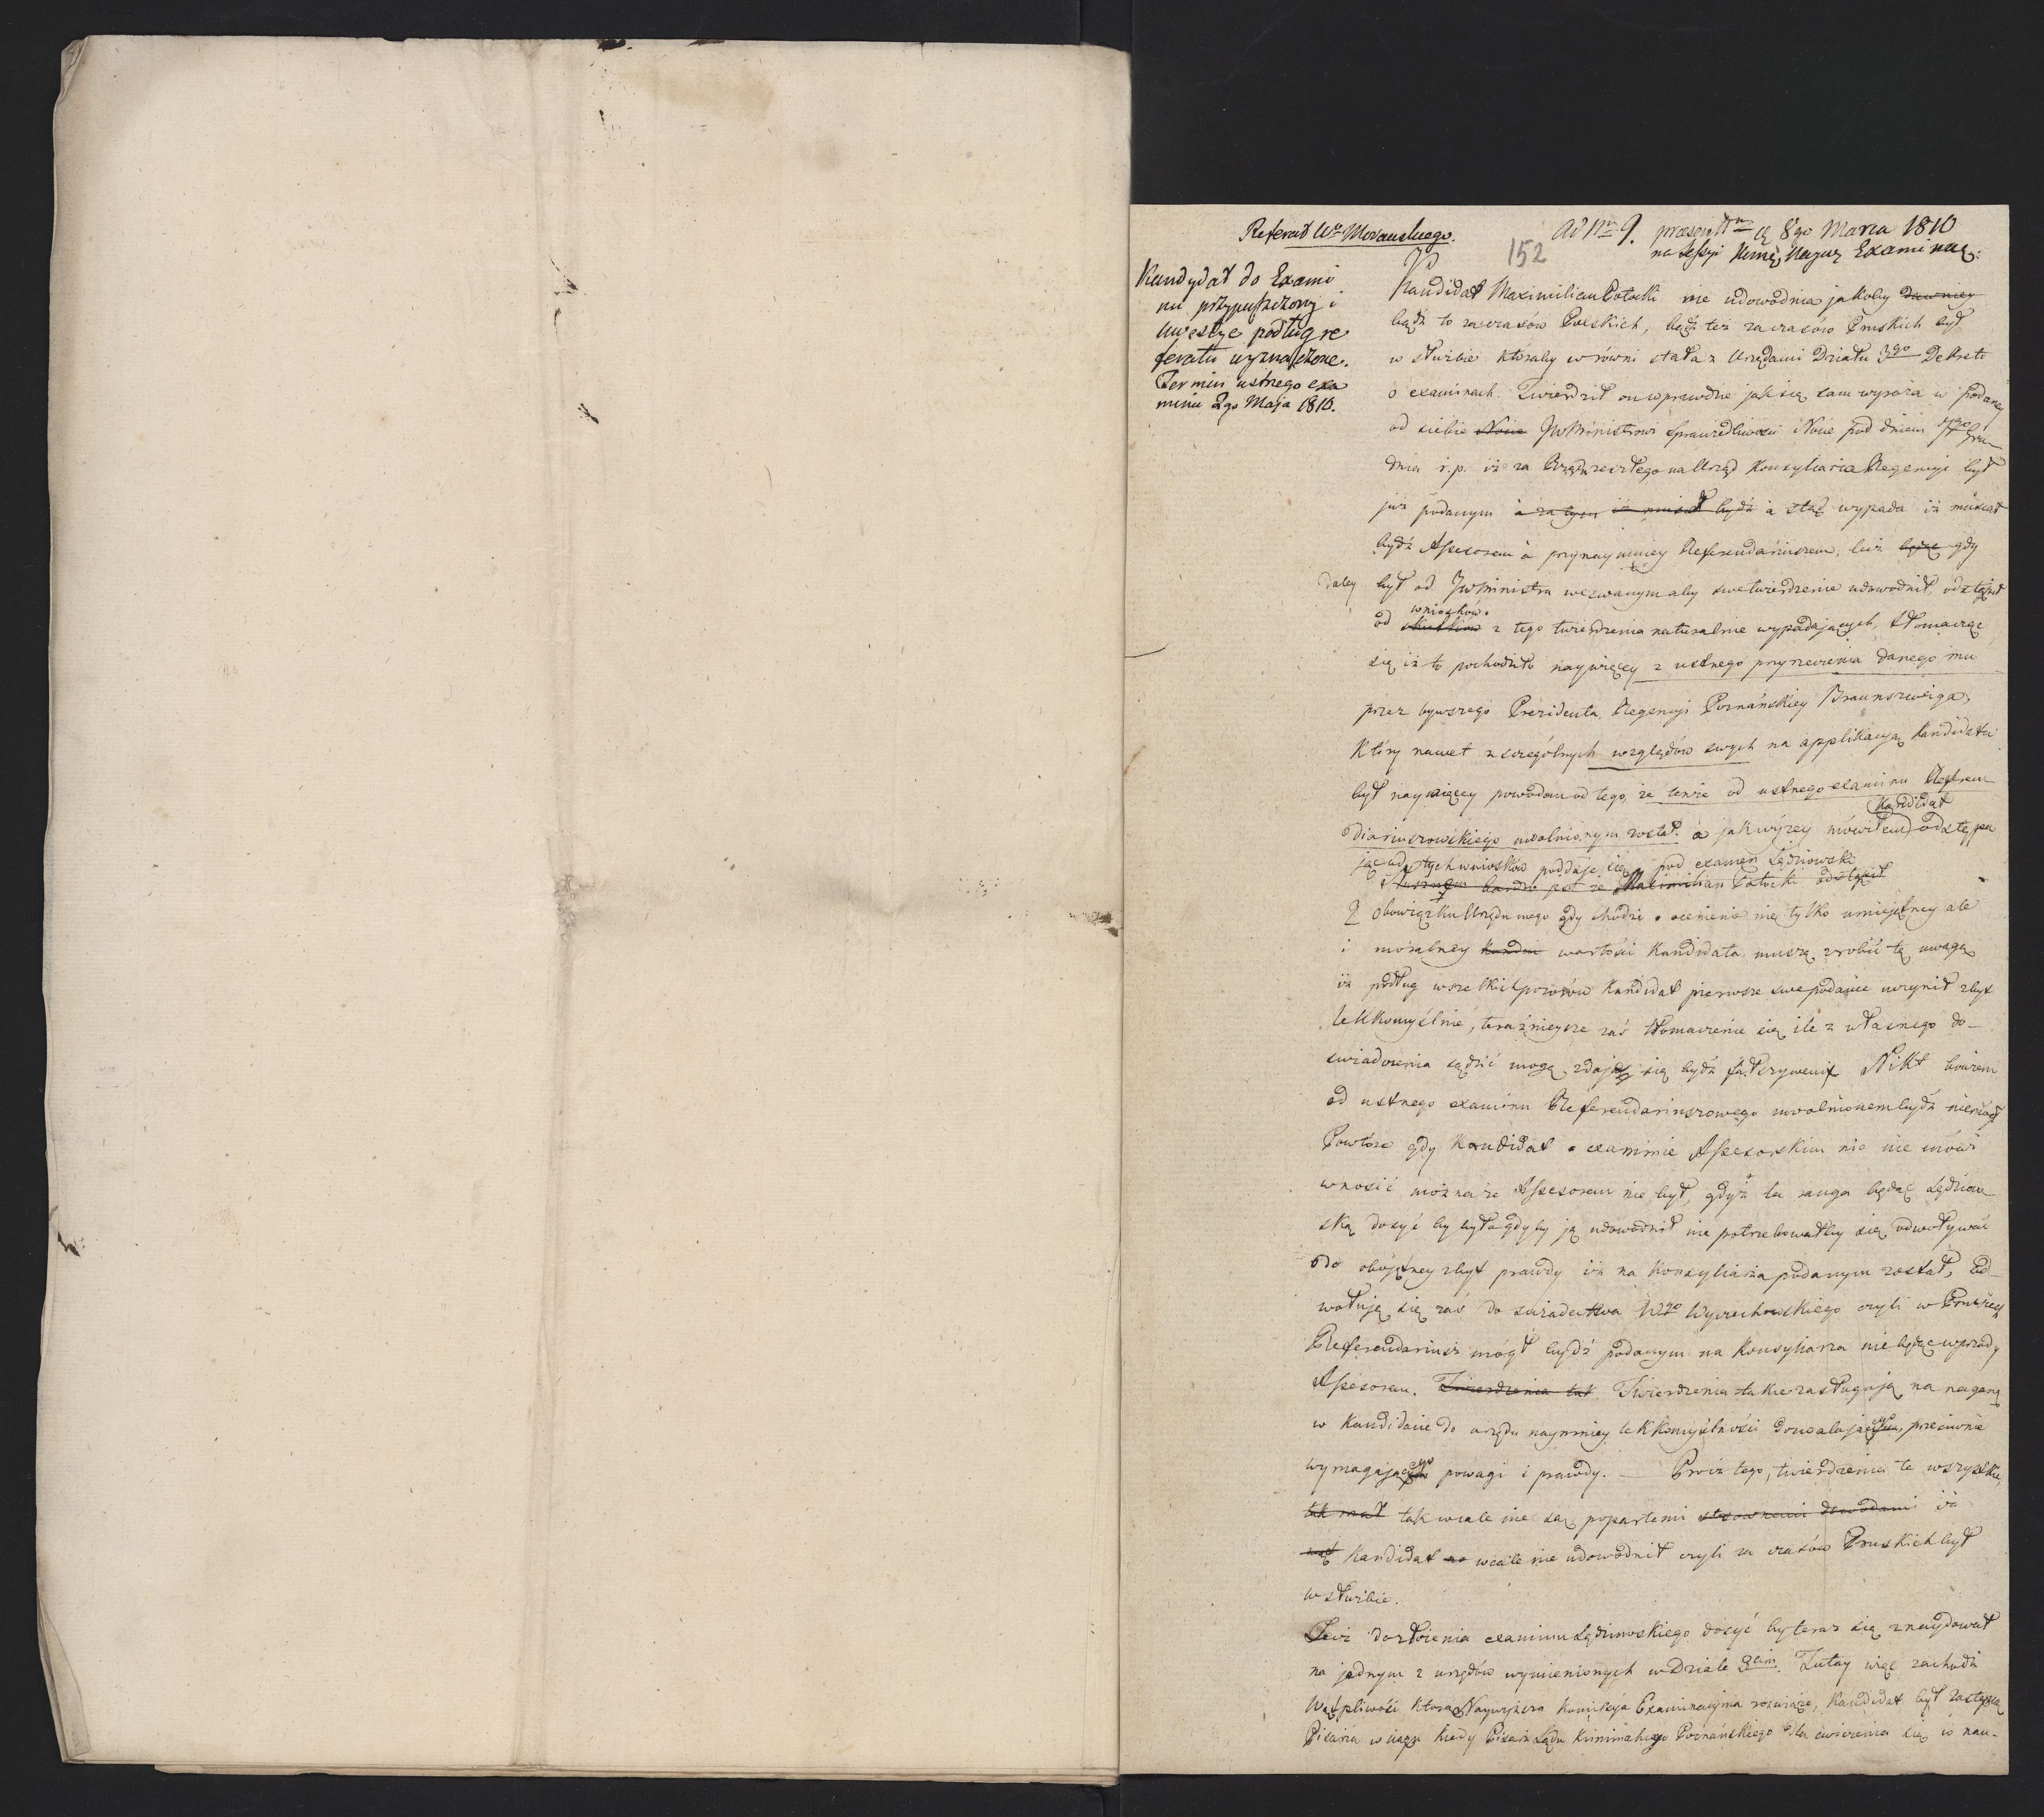 Referat Wo Morawskiego.
Ad Nrm 9. praesentm d. 8go Marca 1810
na Sessyi Kommis Nayw Examinac:
152
Kandydat do Exami
nu przypuszczony i
kwestye podług re
feratu wyznaczone.
Termin ustnego exa
minu 2go Maja 1810.
Kandidat Maximilian Potocki nie udowodnia jakoby dawniey
bądź to za czasów Polskich, bądź też za czasów Pruskich był
w służbie któraby w równi stała z Urzędami Działu 3go Dekretu
o examinach. Twierdził on wprawdzie jak się sam wyraża w podaney
od siebie Nocie JWMinistrowi Sprawiedliwości Nocie pod dniem Gru
dnia r. p. iż za Rządu zeszłego na Urząd Konsyliarza Regencyi był
już podanym a zatym iż musiał bydź a stąd wypada iż musiał
bydź Assessorem a przynaymniey Referendariuszem, lecz będąc gdy
daley był od JWMinistra wezwanym aby swe twierdzenie udowodnił, odstąpił
od skutków wniosków z tego twierdzenia naturalnie wypadających, tłomacząc
się iż to pochodziło naywięcey z ustnego przyrzeczenia danego mu
przez bywszego Prezidenta Regencyi Poznańskiey Braunszweiga,
Który nawet z szczególnych względów swych na applikacyą Kandidata
był naywięcey powodem od tego, że tenże od ustnego examinu Referen
diariuszowskiego uwolnionym został. a jak wyzey mówiłem Kandidat odstępu
jąc od tych wniosków poddaje się pod examen Sędziowski
bardzo jest że Maximilian Potocki odstąpił
Z obowiązku Urzędu mego gdy chodzi o ocenienie nie tylko umiejętney ale
i moralney wartości Kandidata muszę zrobić tę uwagę
iż podług wszelkich pozorów Kandidat pierwsze swe podanie uczynił zbyt
lekkomyślnie, teraźnieysze zaś tłomaczenie się ile z własnego do-
świadczenia sądzić mogę zdaje się bydź fałszywem Nikt bowiem
od ustnego examinu Referendariuszowego uwolnionem bydź nie mógł
Powtóre gdy Kandidat o examinie Assesorskim nic nie mówi
wnosić można że Assesorem nie był, gdyż ta ranga będąc Sędziow-
ską dosyć by było gdyby ją udowodnił nie potrzebowałby się odwoływać
do obojętney zbyt prawdy iż na Konsyliarza podanym został, Od-
wołuję się zaś do świadectwa Wgo Wyczechowskiego czyli w Prusiech
Referendariusz mógł bydź podanym na Konsyliarza nie będąc wprzódy
Assesorem. Twierdzenia tak Twierdzenia takie zasługują na naganę
w Kandidacie do urzędu naymniey lekkomyślności dozwalającego, przeciwnie
wymagającego powagi i prawdy. — Prócz tego, twierdzenia te wszystkie
tak wcale nie są popartemi stosownemi dowodami iż
Kandidat wcale nie udowodnił czyli za czasów Pruskich był
w służbie.
Lecz do złożenia examinu Sędziowskiego dosyć by teraz się znaydował
na jednym z urzędów wymienionych w Dziale 3cim. Tutay więc zachodzi
Wątpliwość którą Naywyższa Kommissya Examinacyjna rozwiąże, Kandidat był zastępcą
Pisarza w ciągu kiedy Pisarz Sądu Kriminalnego Poznańskiego dla ćwiczenia się w nau-